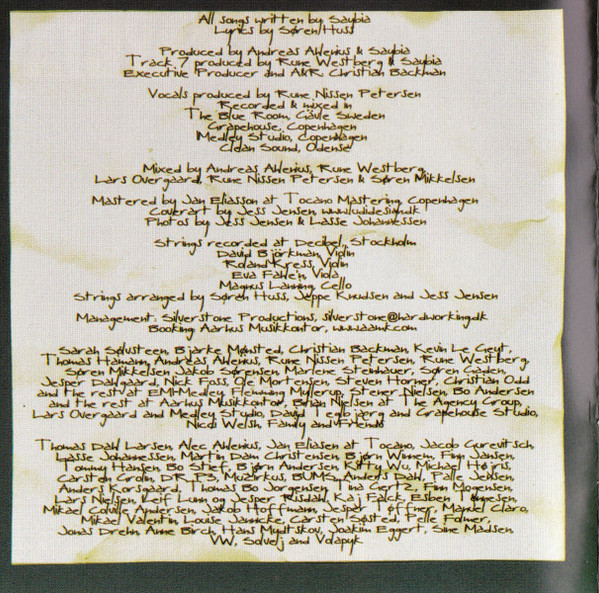 All songs written by Saybia
Lyrics by Søren Huss
Produced by Andreas Ahlenius & Saybia
Track 7 produced by Rune Westberg & Saybia
Executive Producer and A&R: Christian Backman
Vocals produced by Rune Nissen Petersen
Recorded & mixed in
The Blue Room, Gävle Sweden
Grapehouse, Copenhagen
Medley Studio, Copenhagen
Clean Sound, Odense
Mixed by Andreas Ahlenius, Rune Westberg,
Lars Overgaard, Rune Nissen Petersen & Søren Mikkelsen
Mastered by Jan Eliasson at Tocano Mastering, Copenhagen
Coverart by Jess Jensen,
Photos by Jess Jensen & Lasse Johannessen
Strings recorded at Decibel, Stockholm
David Björkman, Violin
Roland Kress, Violin
Eva Viola,
Magnus Lanning, Cello
Strings arranged by Søren Huss, Jeppe Knudsen and Jess Jensen
Management: Silverstone Productions, silverstone@hardworking.dk
Booking: Aarhus Musikkontor, www.aamk.com
Sarah Sølvsteen, Bjarke Mønsted, Christian Backman, Kevin Le Geut,
Thomas Hamann, Andreas Ahlenius, Rune Nissen Petersen, Rune Westberg,
Søren Mikkelsen, Jakob Sørensen, Marlene Steinhauer, Søren Gaden,
Jesper Dalgaard, Nick Foss, Ole Mortensen, Steven Horner, Christian Odd
and the rest at EMI-Medley, Flemming Myllerup, Stener Nielsen, Bo Andersen
and the rest at Aarhus Musikkontor, Brian Nielsen at The Agency Group,
Lars Overgaard and Medley Studio, David Teglbjærg and Grapehouse Studio,
Nicol Welsh, Family and Friends
Thomas Dahl Larsen, Alec Ahlenius, Jan Eliasen at Tocano, Jacob Gurevitsch,
Lasse Johannessen, Martin Dam Christensen, Bjørn Winnem, Finn Jansen,
Tommy Hansen, Bo Stief, Bjørn Andersen, Kitty Wu, Michael Højris,
Carsten Grolin, DR P3, Muzarkus, BUMS, Anders Dahl, Palle Jensen,
Anders Korsgaard, Thomas Bo Jørgensen, Tina Gertz, Finn Mogensen,
Lars Nielsen, Leif Lunn og Jesper Risdahl, Kaj Falck, Esben Tønnesen,
Mikael Colville Andersen, Jakob Hoffmann, Jesper Tøffner, Manuel Claro,
Mikael Valentin, Louise Jannicke, Carsten Søsted, Pelle Folmer,
Jonas Drehn, Anne Birch, Hans Mydtskov, Joakim Eggert, Sine Madsen,
VW, Solvej and Volapyk.